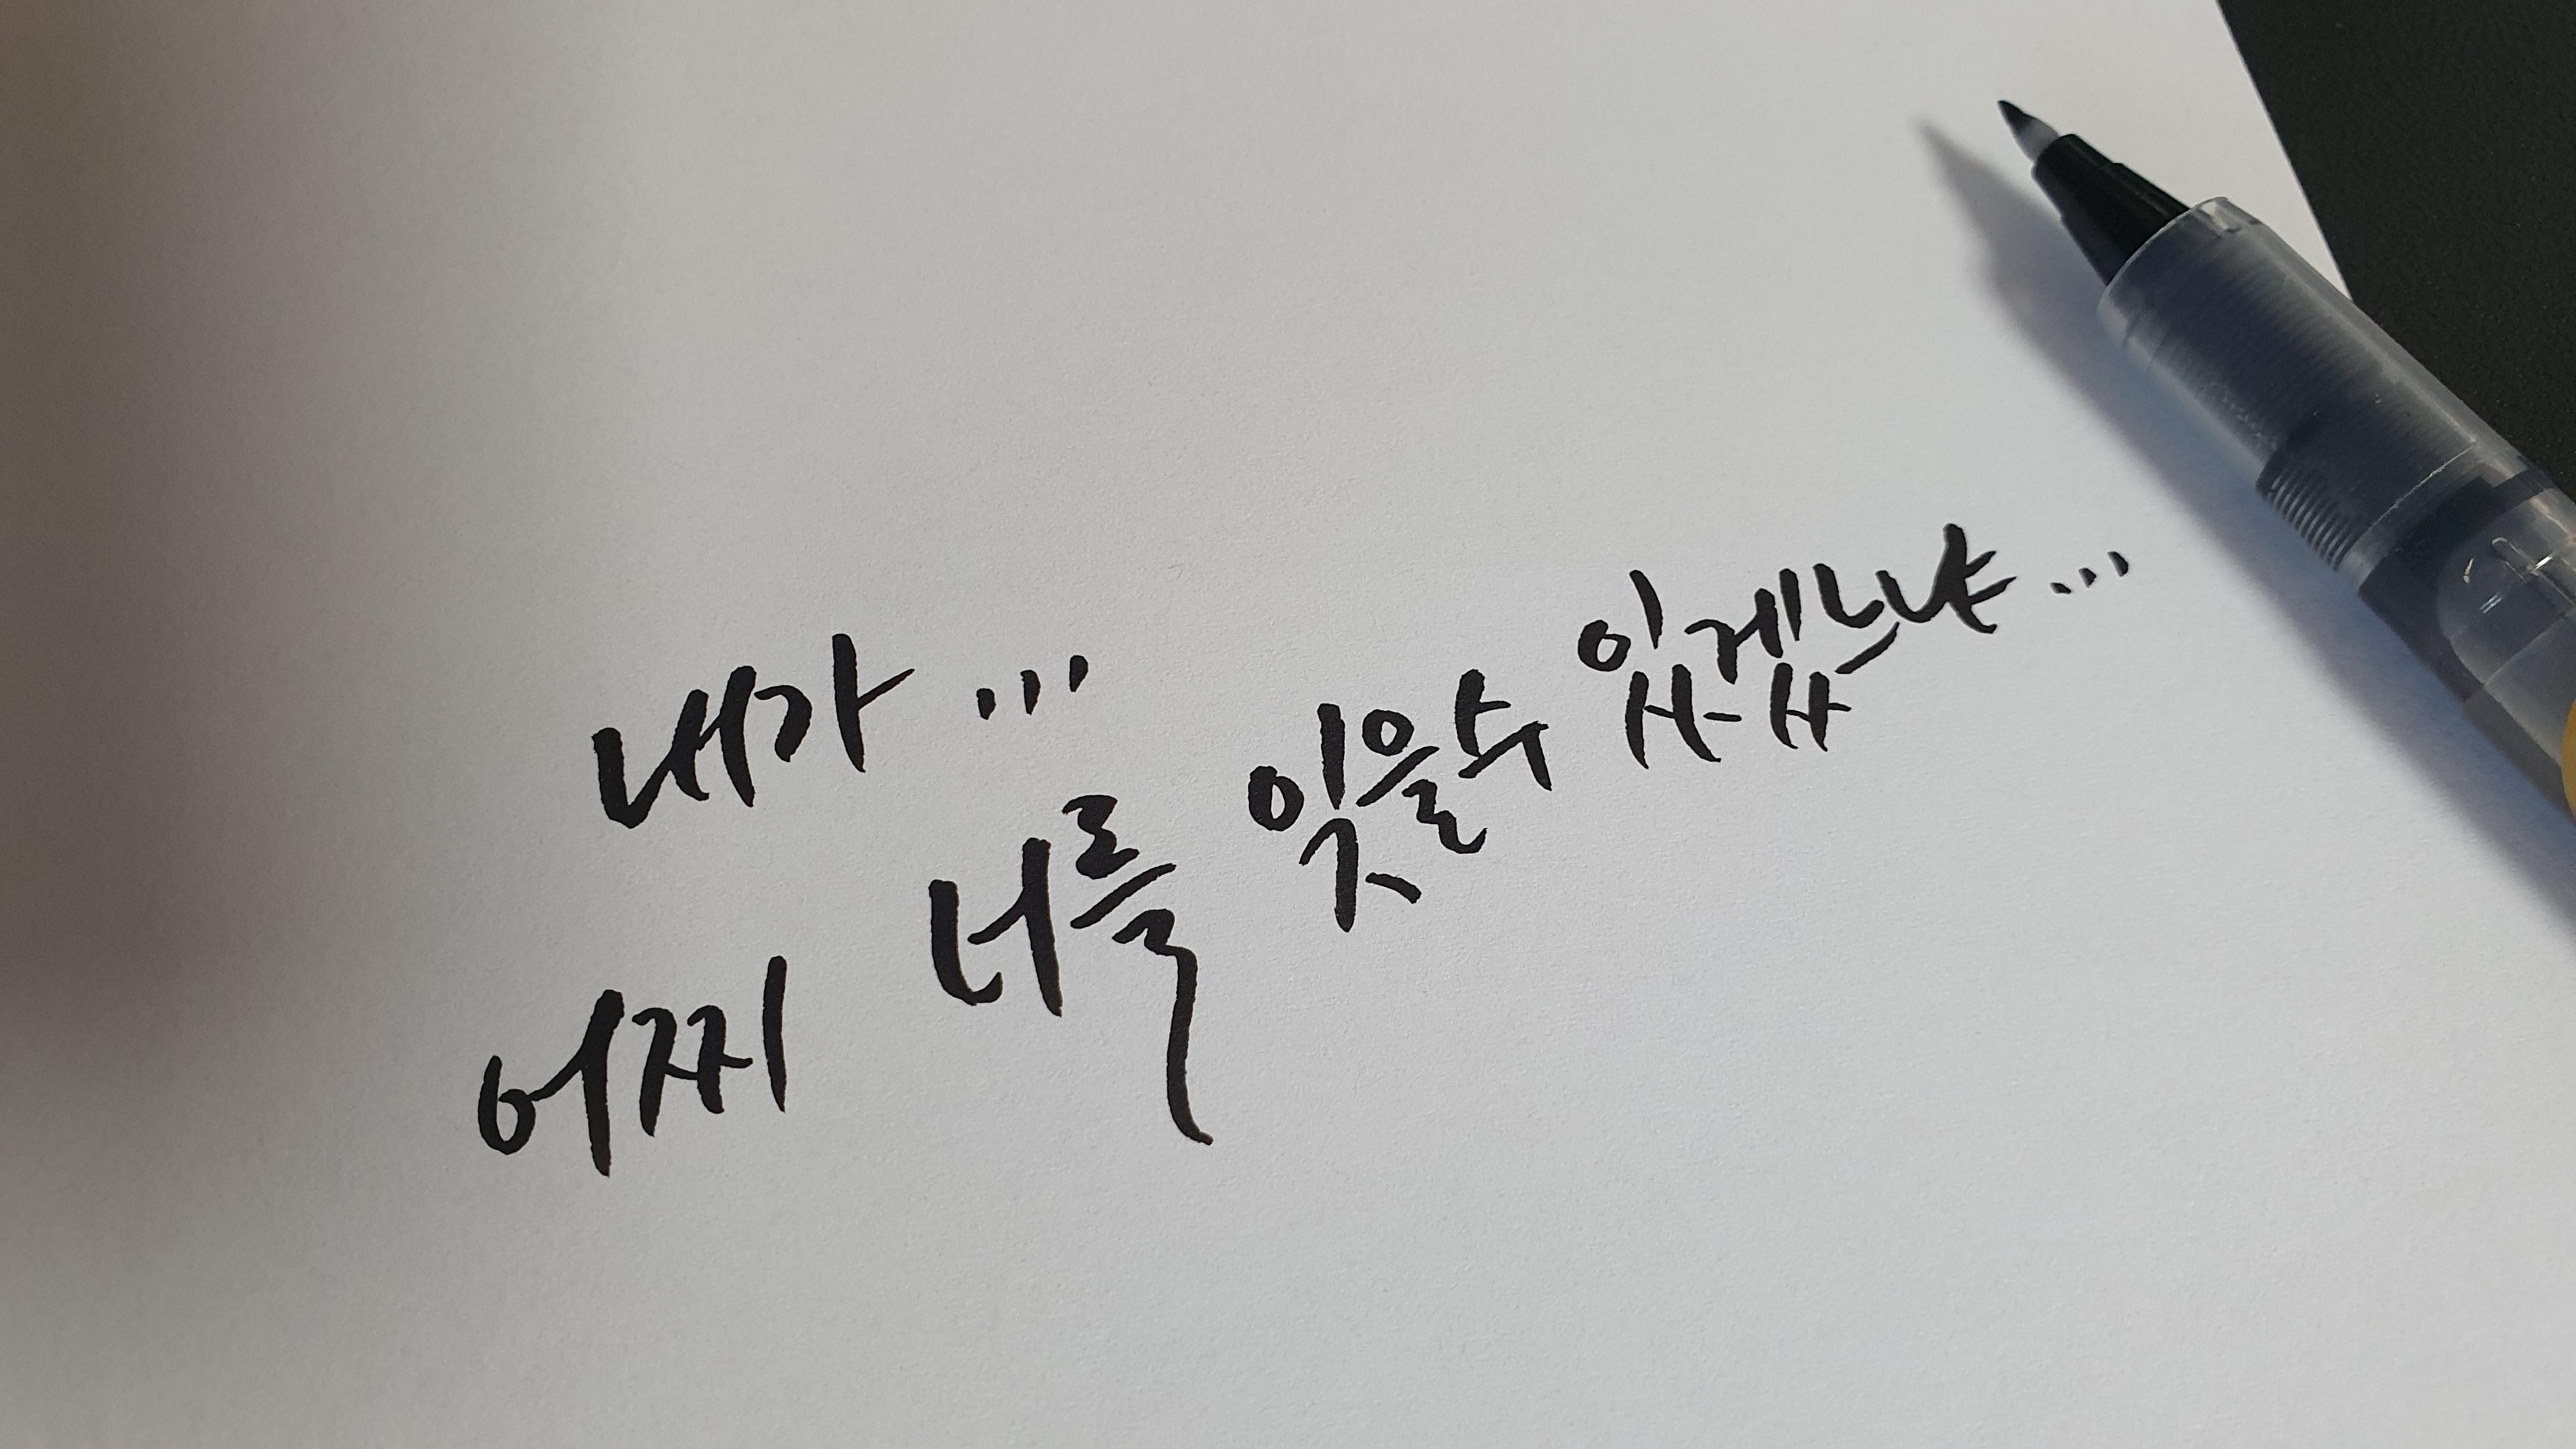 내가...
어찌 너를 잊을수 있겠느냐...